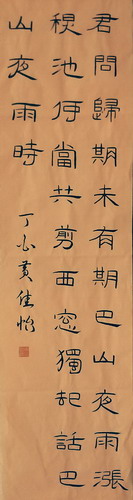 君問歸期未有期巴山夜雨漲
池何當共剪西窓燭却話巴
山夜雨時
黃佳怡